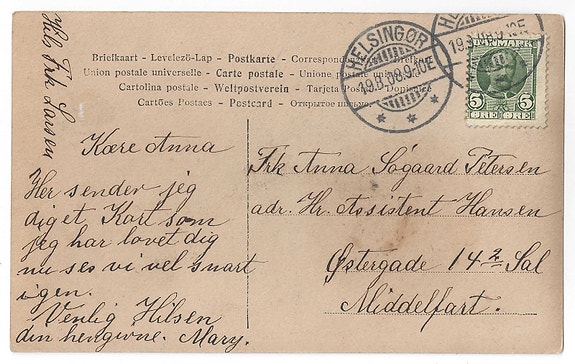 Hils Frk Larsen
Briefkaart - Levelező-Lap - Postkarte - Correspondenzkarte - Brefkort
Union postale universelle - Carte postale - Unione postale
Cartolina postale - Weltpostverein - Tarjeta Postal
Cartões Postaes - Postcard - Открытое письмо
HELSINGØR
19.8.08.9-10E
19.8.08.9-10E
DANMARK
5 5
ØRE ØRE
Kære Anna
Her sender jeg
dig et Kort som
jeg har lovet dig
nu ses vi vel snart
igen.
Venlig Hilsen
din hengivne. Mary.
Frk Anna Søgaard Petersen
adr. Hr. Assistent Hansen
Østergade 14 2 Sal
Middelfart.